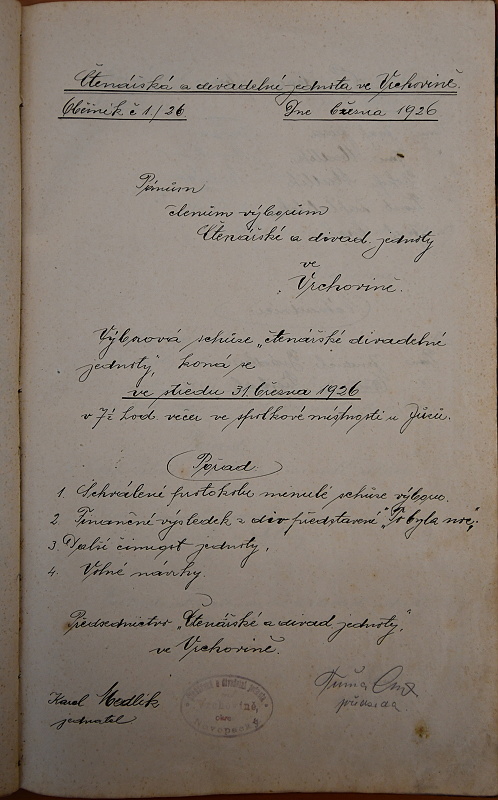 Čtenářská a divadelní jednota ve Vrchovině.
Oběžník č 1./26 Dne března 1926
Pánům
členům výboru
Čtenářské a divad. jednoty
ve
Vrchovině.
Výborová schůze „čtenářské divadelní
jednoty", koná se
ve středu 31. března 1926
v 7½ hod. večer ve spolkové místnosti u
Pořad.
1. Schválení protokolu minulé schůze výboru.
2. Finanční výsledek z div představení „To byla noc",
3. Další činnost jednoty,
4. Volné návrhy.
Předsednictvo „Čtenářské a divad. jednoty",
ve Vrchovině.
Karel Medlík
jednatel
Vrchovině,
Tuma
předseda